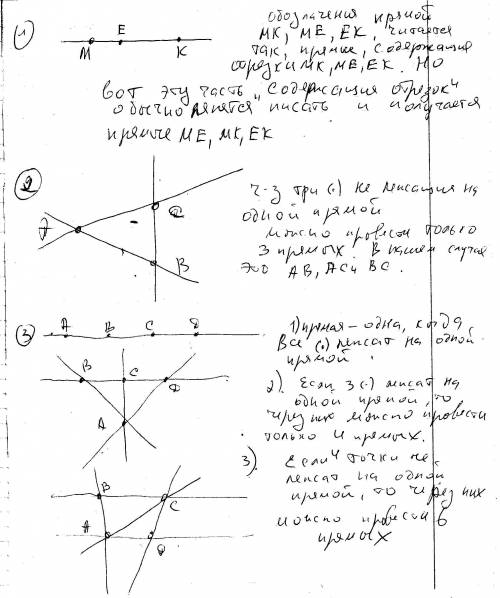 1
M E K
обозначения прямой
МК, МЕ, ЕК, читается
так, прямые, содержащие
отрезки МК, МЕ, ЕК. Но
вот эту часть "содержащая отрезок"
обычно ленятся писать и получается
прямые МЕ, МК, ЕК
2
A C B
ч-з три (•) не лежащие на
одной прямой
можно провести только
3 прямых. В нашем случае
это АВ, АС и ВС.
3
A B C D
1) прямая – одна, когда
все (•) лежат на одной
прямой.
B C D
A
2). Если 3 (•) лежат на
одной прямой, то
через них можно провести
только 4 прямых.
3).
B C
A D
Если 4 точки не
лежат на одной
прямой, то через них
можно провести 6
прямых